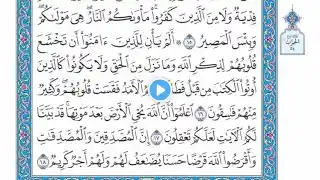 فِدْيَةٌ وَلَا مِنَ ٱلَّذِينَ كَفَرُوا۟ مَأْوَىٰكُمُ ٱلنَّارُ هِىَ مَوْلَىٰكُمْ
وَبِئْسَ ٱلْمَصِيرُ ١٥ أَلَمْ يَأْنِ لِلَّذِينَ ءَامَنُوٓا۟ أَن تَخْشَعَ
قُلُوبُهُمْ لِذِكْرِ ٱللَّهِ وَمَا نَزَلَ مِنَ ٱلْحَقِّ وَلَا يَكُونُوا۟ كَٱلَّذِينَ
أُوتُوا۟ ٱلْكِتَٰبَ مِن قَبْلُ فَطَالَ ٱلْأَمَدُ فَقَسَتْ قُلُوبُهُمْ وَكَثِيرٌ
مِّنْهُمْ فَٰسِقُونَ ١٦ ٱعْلَمُوٓا۟ أَنَّ ٱللَّهَ يُحْىِ ٱلْأَرْضَ بَعْدَ مَوْتِهَا قَدْ بَيَّنَّا
لَكُمُ ٱلْءَايَٰتِ لَعَلَّكُمْ تَعْقِلُونَ ١٧ إِنَّ ٱلْمُصَّدِّقِينَ وَٱلْمُصَّدِّقَٰتِ
وَأَقْرَضُوا۟ ٱللَّهَ قَرْضًا حَسَنًا يُضَٰعَفُ لَهُمْ وَلَهُمْ أَجْرٌ كَرِيمٌ ١٨